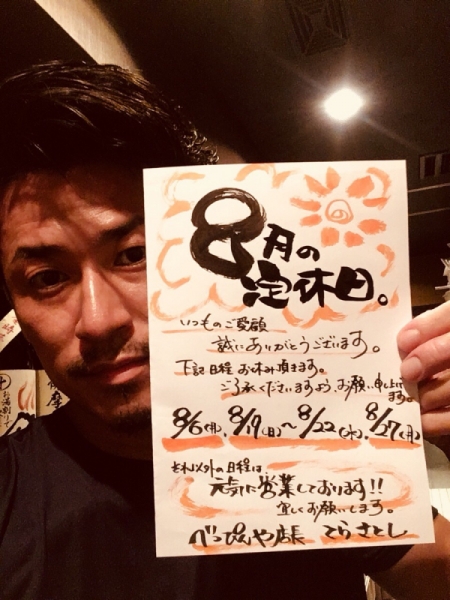 8月の
定休日。
いつものご愛顧
誠にありがとうございます。
下記日程お休み頂きます。
ご了承くださいますよう、お願い申し上げます。
8/6(月)、8/19(日)〜8/22(水)、8/27(月)
それ以外の日程は、
元気に営業しております!!
宜しくお願いします。
べっぴんや店長 てらさとし
お湯割りで
薩摩